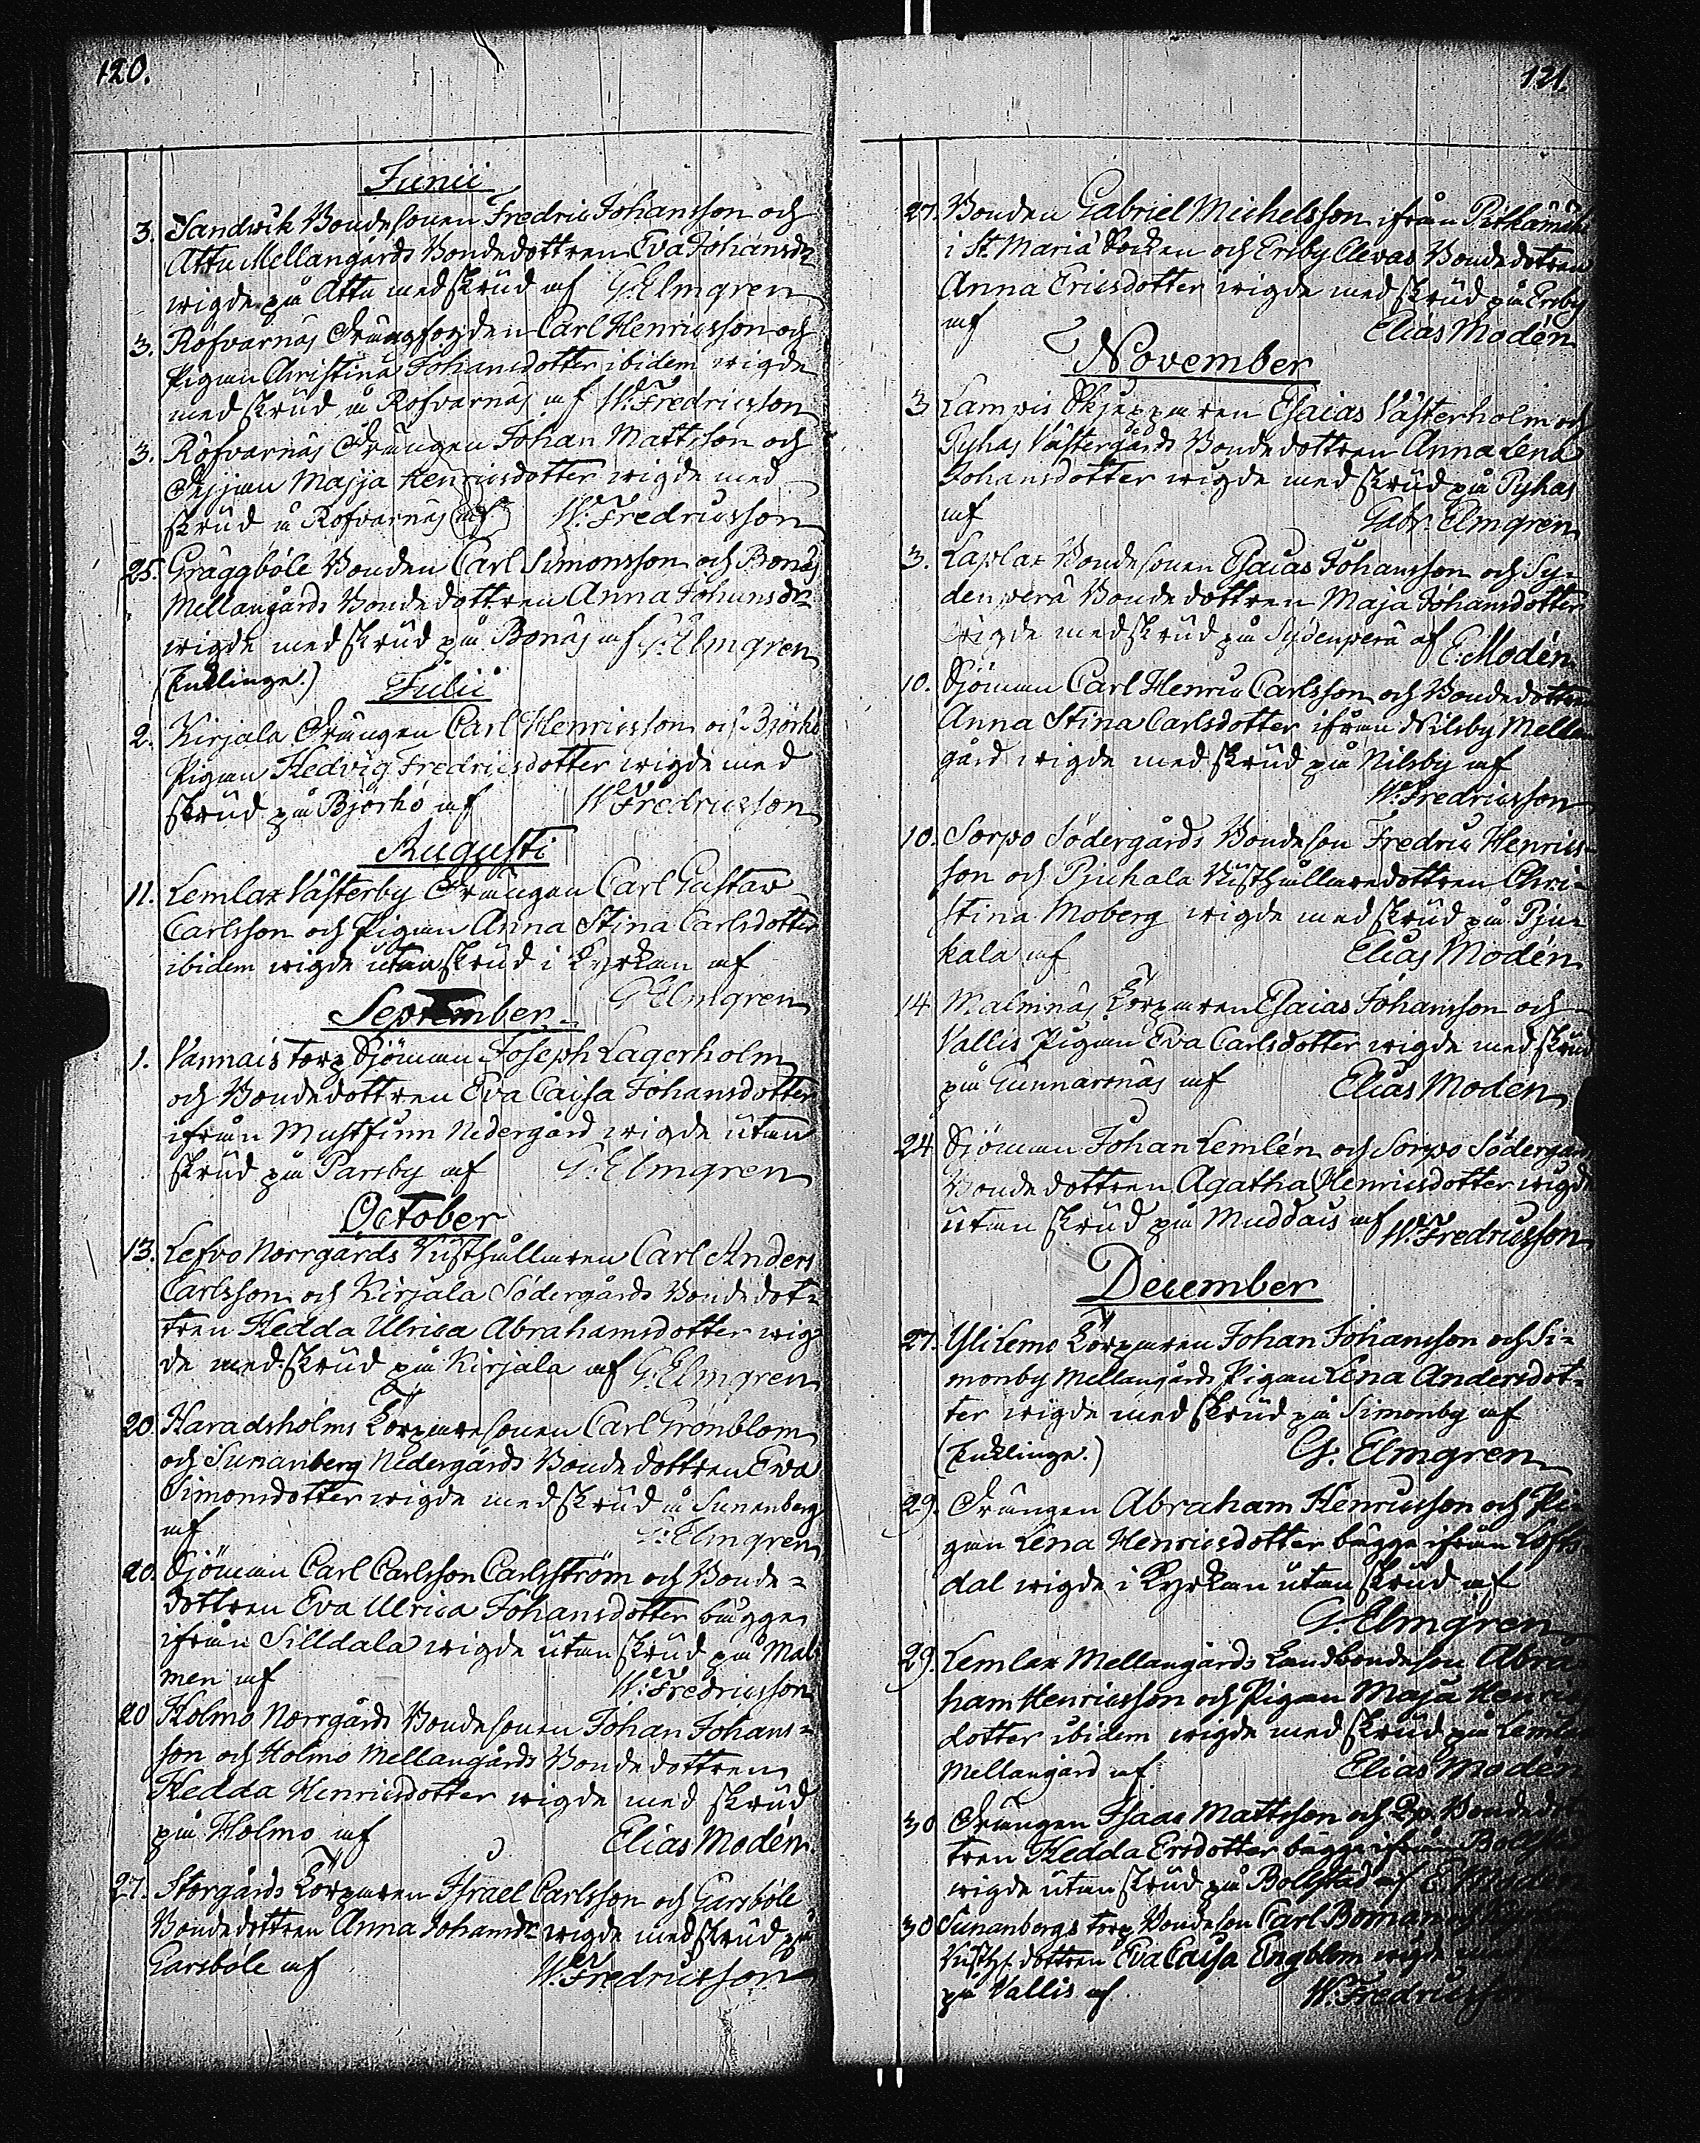 120.
Junii
3. Sandvik Bondesonen Fredric Johansson och
Attu Mellangårds Bondedottren Eva Johansdr
wigde på Attu med skrud af G. Elmgren
3. Röfvarnäs Drängfogden Carl Henricsson och
Pigan Christina Johansdotter ibidem wigde
med skrud å Röfvarnäs af W. Fredricsson
3. Röfvarnäs Drängen Johan Mattsson och
Majja Henricsdotter wigde med
skrud å Röfvarnäs af W. Fredricsson
25. Gräggböle Bonden Carl Simonsson och Bonäs
Mellangårds Bondedottren Anna Johansdr
wigde med skrud på Bonäs af G. Elmgren
(Enklinge.)
Julii
2. Kirjala Drängen Carl Henricsson och Björkö
Pigan Hedvig Fredricsdotter wigde med
skrud på Björkö af W. Fredricsson
Augusti
11. Lemlax Västerby Drängen Carl Gustav
Carlsson och Pigan Anna Stina Carlsdotter
ibidem wigde utan skrud i Kyrkan af
G. Elmgren
September
1. Vannais torp Sjöman Joseph Lagerholm
och Bondedottren Eva Caisa Johansdotter
ifrån Mustfinn Nedergård wigde utan
skrud på Parsby af G. Elmgren
October
13. Lefvo Norrgårds Rusthållaren Carl Anders
Carlsson och Kirjala Södergårds Bondedot-
tren Hedda Ulrica Abrahamsdotter wig-
de med skrud på Kirjala af G. Elmgren
20. Haradsholms Torparesonen Carl Grönblom
och Sunanberg Nedergårds Bondedottren Eva
Simonsdotter wigde med skrud å Sunanberg
af G. Elmgren
20. Sjöman Carl Carlsson Carlström och Bonde-
dottren Eva Ulrica Johansdotter bägge
ifrån Silldala wigde utan skrud på Mal-
men af W. Fredricsson
20 Holmo Norrgårds Bondesonen Johan Johans-
son och Holmo Mellangårds Bondedottren
Hedda Henricsdotter wigde med skrud
på Holmo af Elias Modén.
27. Storgårds Torparen Israel Carlsson och Garsböle
Bondedottren Anna Johansdr wigde med skrud på
Garsböle af W. Fredricsson
121.
27. Bonden Gabriel Michelsson ifrån
i St. Mariä Socken och Ersby Clevas Bondedottren
Anna Ericsdotter wigde med skrud på Ersby
af Elias Modén
November
3 Lampis Skepparen Esaias Västerholm och
Pyhas Västergårds Bondedottren Anna Lena
Johansdotter wigde med skrud på Pyhas
af Gabr. Elmgren
3. Laplax Bondesonen Esaias Johansson och Sy-
denperä Bondedottren Maja Johansdotter
wigde med skrud på Sydenperä af E. Modén
10. Sjöman Carl Henric Carlsson och Bondedottren
Anna Stina Carlsdotter ifrån Nilsby Mellan-
gård wigde med skrud på Nilsby af
W. Fredricsson
10. Sorpo Södergårds Bondeson Fredric Henrics-
son och Pjukala Rusthållaredottren Chri-
stina Moberg wigde med skrud på Pju-
kala af Elias Modén
14 Malmnäs Torparen Esaias Johansson och
Vallis Pigan Eva Carlsdotter wigde med skrud
på Gunnarsnäs af Elias Modén
24 Sjöman Johan Lemlén och Sorpo Södergårds
Bondedottren Agatha Henricsdotter wigde
utan skrud på Muddais af W. Fredricsson
December
27. Ylilemo Torparen Johan Johansson och Si-
monby Mellangårds Pigan Lena Andersdot-
ter wigde med skrud på Simonby af
(Enklinge.) G. Elmgren
29. Drängen Abraham Henricsson och Pi-
gan Lena Henricsdotter bägge ifrån Löfs-
dal wigde i Kyrkan utan skrud af
G. Elmgren
29. Lemlax Mellangårds Landbondeson Abra-
ham Henricsson och Pigan Maja Henrics
dotter ibidem wigde med skrud på Lemlax
Mellangård af Elias Modén
30 Drängen Isaac Mattsson och Bondedot-
tren Hedda Ersdotter bägge ifrån Bollstad
wigde utan skrud på Bollstad af E. Modén
30 Sunanbergs torp Bondeson Carl Boman och
Rusth. dottren Eva Caisa Engblom wigde med
på Vallis af W. Fredricsson